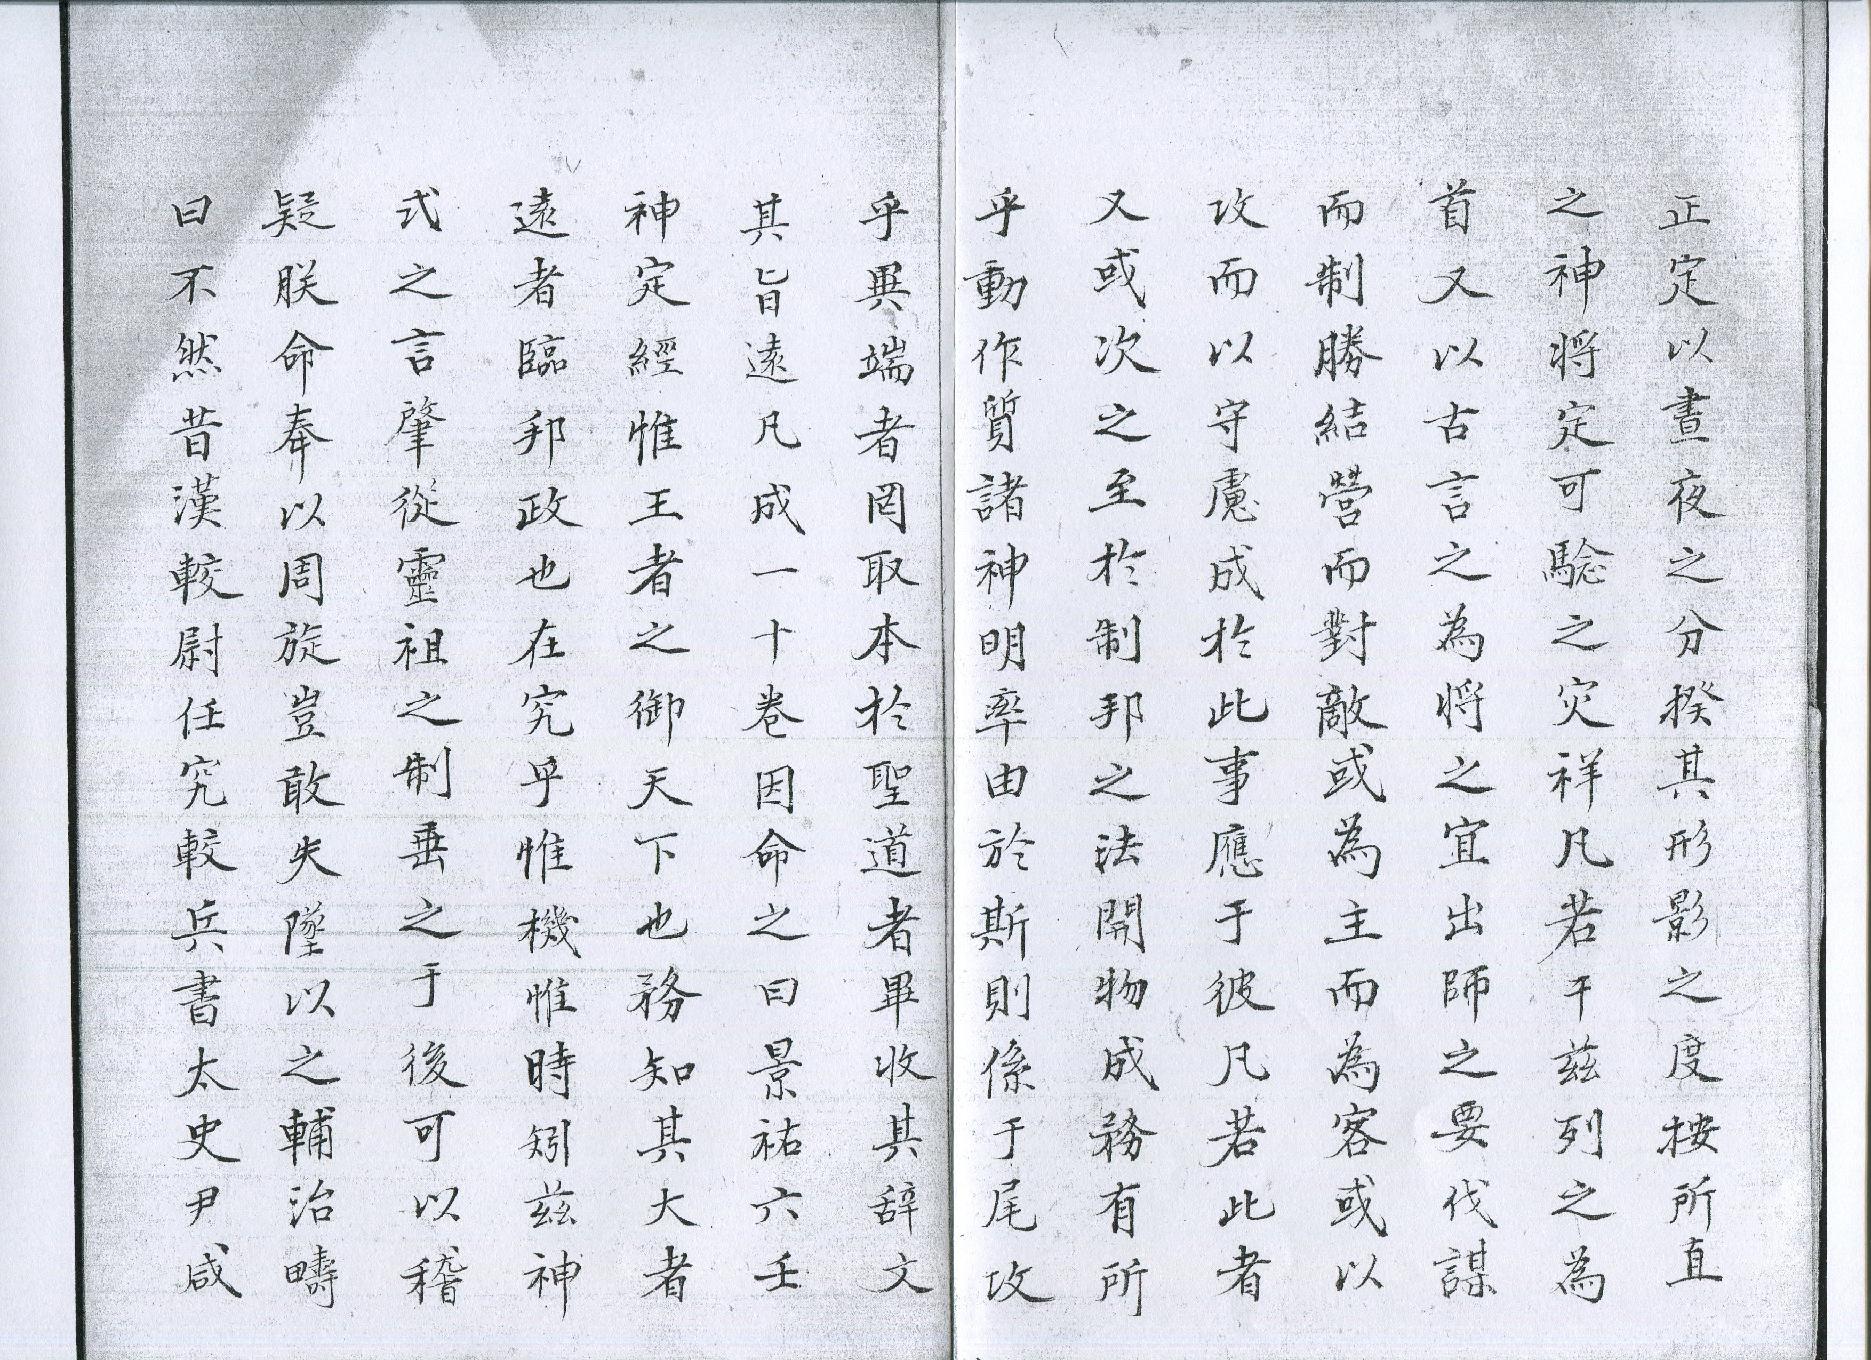 正定以晝夜之分揆其形影之度按所直
之神將定可驗之灾祥凡若干茲列之為
首又以古言之為將之宜出師之要伐謀
而制勝結營而對敵或為主而為客或以
攻而以守慮成於此事應于彼凡若此者
又或次之至於制邦之法開物成務有所
乎動作質諸神明率由於斯則係于尾攻
乎異端者罔取本於聖道者畢收其辞文
其旨遠凡成一十卷因命之曰景祐六壬
神定經惟王者之御天下也務知其大者
遠者臨邦政也在究乎惟機惟時矧茲神
式之言肇從靈祖之制垂之于後可以稽
疑朕命奉以周旋豈敢失墜以之輔治疇
曰不然昔漢較尉任究較兵書太史尹咸